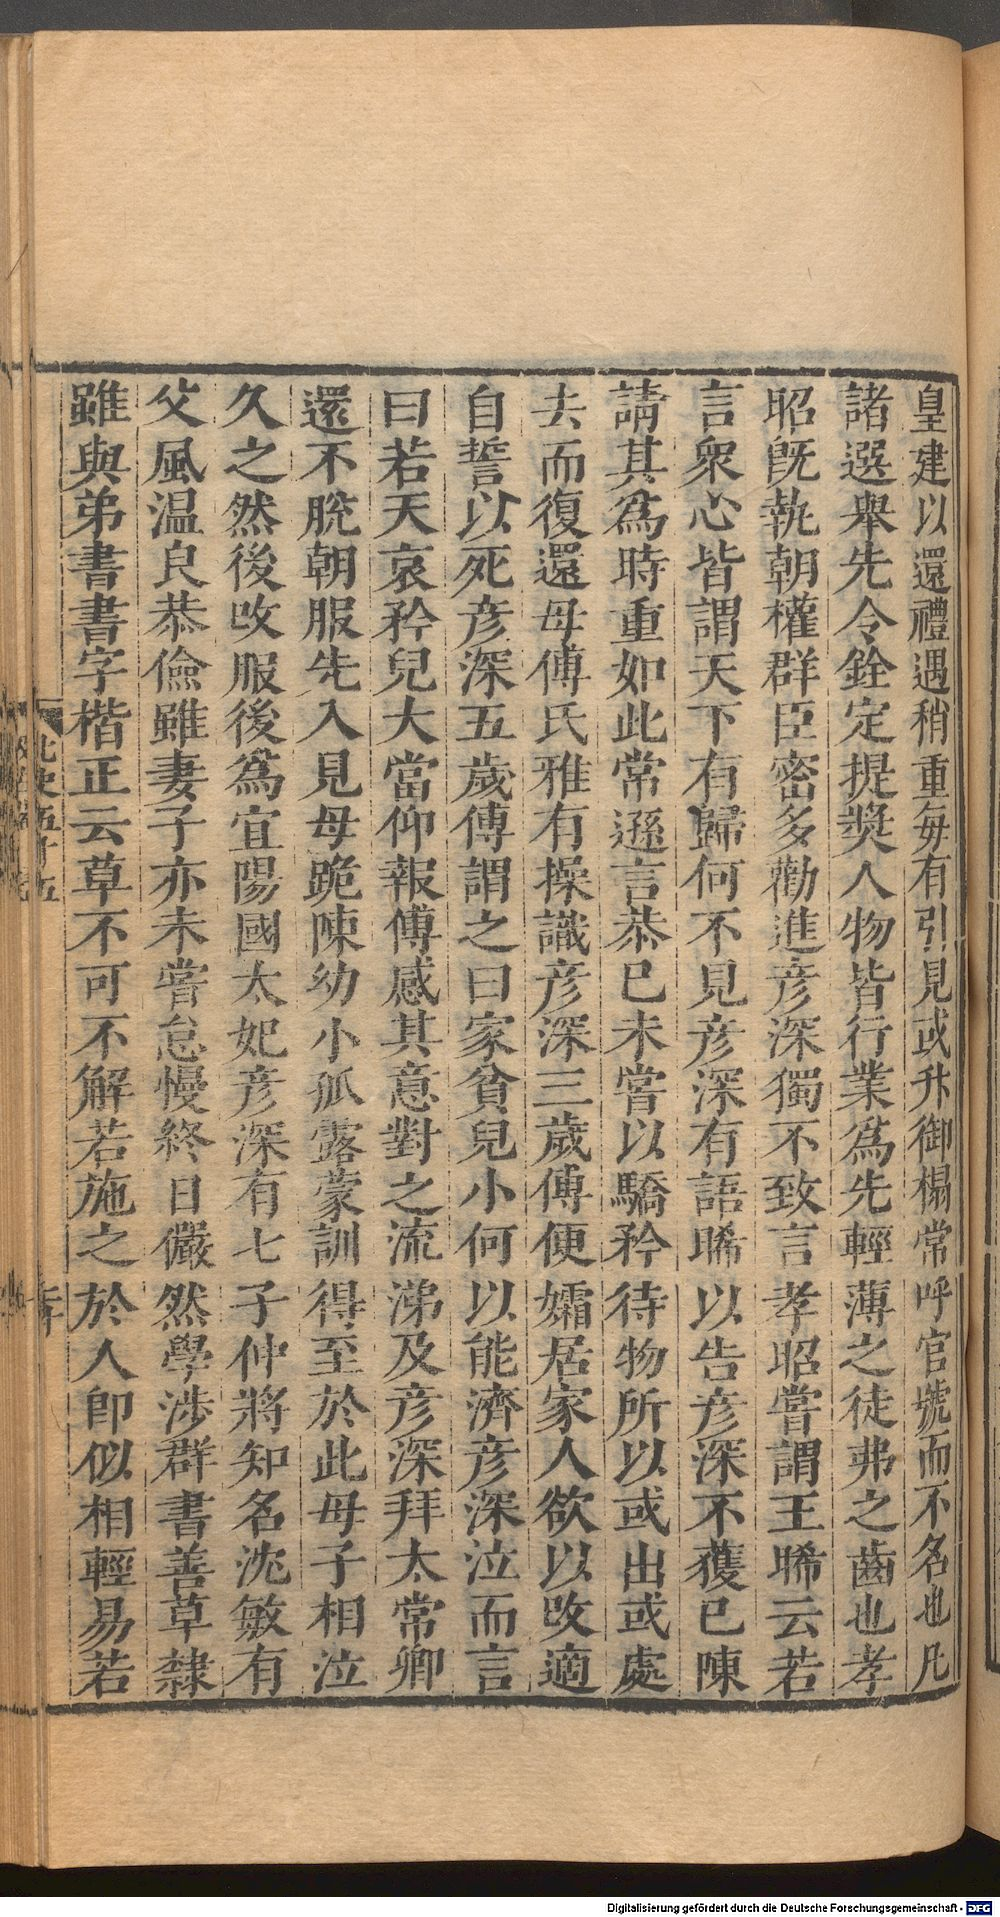 皇建以還禮遇稍重每有引見或升御榻常呼官號而不名也凡
諸選舉先令銓定提奬人物皆行業爲先輕薄之徒弗之齒也孝
昭旣執朝權群臣密多勸進彦深獨不致言孝昭嘗謂王晞云若
言衆心皆謂天下有歸何不見彦深有語晞以告彦深不獲已陳
請其爲時重如此常遜言恭已未嘗以驕矜待物所以或出或處
去而復還母傅氏雅有操識彦深三歲傅便孀居家人欲以攺適
自誓以死彦深五歲傅謂之曰家貧兒小何以能濟彦深泣而言
曰若天哀矜兒大當仰報傅感其意對之流涕及彦深拜太常卿
還不脫朝服先入見母跪陳幼小孤露蒙訓得至於此母子相泣
久之然後攺服後爲宜陽國太妃彦深有七子仲將知名沈敏有
父風温良恭儉雖妻子亦未嘗怠慢終日儼然學涉群書善草隸
雖與弟書書字楷正云草不可不解若施之於人卽似相輕易若
北史五十五
Digitalisierung gefördert durch die Deutsche Forschungsgemeinschaft - DFG